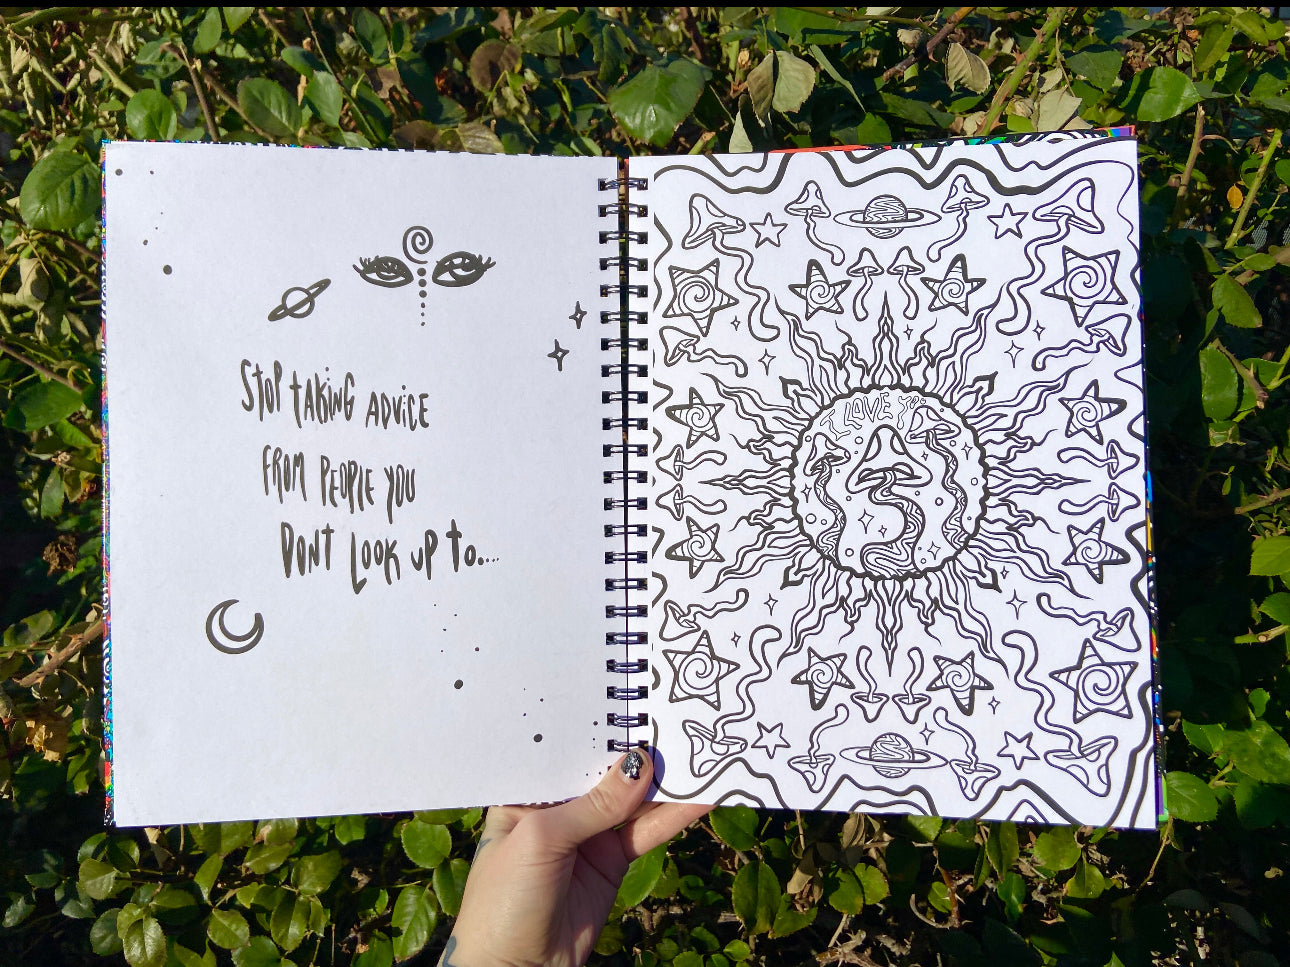 STOP TAKiNG ADViCE
FROM PEOPLE YOU
DONT LOOK UP to.....
LOVE YOU